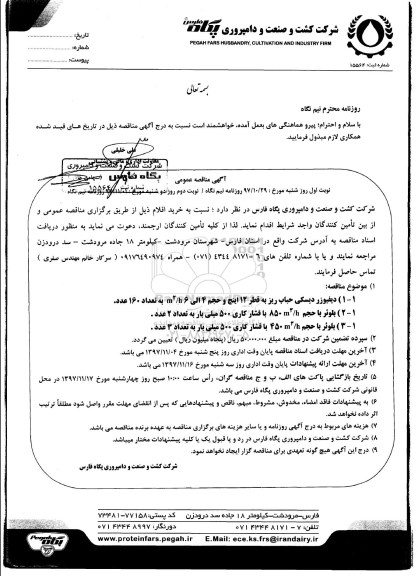 شرکت کشت و صنعت و دامپروری پگاه فارس
PEGAH FARS HUSBANDRY, CULTIVATION AND INDUSTRY FIRM
شماره ثبت: ۱۵۵۶۴
تاریخ:
شماره:
پیوست:
بسمه تعالی
روزنامه محترم نیم نگاه
با سلام و احترام؛ پیرو هماهنگی های بعمل آمده، خواهشمند است نسبت به درج آگهی مناقصه ذیل در تاریخ های قید شده
همکاری لازم مبذول فرمایید.
علی خلیلی
شرکت کشت و صنعت و دامپروری
پگاه فارس
شماره ثبت ۱۵۵۶۴
آگهی مناقصه عمومی
نوبت اول روز شنبه مورخ: ۹۷/۱۰/۲۹ روزنامه نیم نگاه / نوبت دوم روز روزنامه نیم نگاه
شرکت کشت و صنعت و دامپروری پگاه فارس در نظر دارد: نسبت به خرید اقلام ذیل از طریق برگزاری مناقصه عمومی و
از بین تأمین کنندگان واجد شرایط اقدام نماید. لذا از کلیه تأمین کنندگان ارجمند، دعوت می نماید به منظور دریافت
اسناد مناقصه به آدرس شرکت واقع در استان فارس- شهرستان مرودشت -کیلومتر ۱۸ جاده مرودشت - سد درودزن
مراجعه نمایند و یا با شماره تلفن های ۶-۸۱۷۱ ۴۳۴۴ (۰۷۱) - همراه ۰۹۱۷۶۴۹۰۹۷۴ (سرکار خانم مهندس صفری)
تماس حاصل فرمایند.
۱) موضوع مناقصه:
۱-۱) دیفیوزر دیسکی حباب ریز به قطر ۱۲ اینچ و حجم ۴ الی ۶ m³/h به تعداد ۱۶۰ عدد.
۱-۲) بلوئر با حجم ۸۵۰ m³/h با فشار کاری ۵۰۰ میلی بار به تعداد ۲ عدد.
۱-۳) بلوئر با حجم ۴۵۰ m³/h با فشار کاری ۵۰۰ میلی بار به تعداد ۳ عدد.
۲) سپرده تضمین شرکت در مناقصه مبلغ ۵۰.۰۰۰.۰۰۰ ریال (پنجاه میلیون ریال) تعیین می گردد.
۳) آخرین مهلت دریافت اسناد مناقصه پایان وقت اداری روز پنج شنبه مورخ ۱۳۹۷/۱۱/۰۴ می باشد.
۴) آخرین مهلت ارائه پیشنهادات پایان وقت اداری روز سه شنبه مورخ ۱۳۹۷/۱۱/۱۶ می باشد.
۵) تاریخ بازگشایی پاکت های الف، ب و ج مناقصه گران، رأس ساعت ۱۰:۰۰ صبح روز چهارشنبه مورخ ۱۳۹۷/۱۱/۱۷ در محل
قانونی شرکت کشت و صنعت و دامپروری پگاه فارس می باشد.
۶) به پیشنهادات فاقد امضاء، مخدوش، مشروط، مبهم، ناقص و پیشنهادهایی که پس از انقضای مهلت مقرر واصل شود مطلقاً ترتیب
اثر داده نخواهد شد.
۷) هزینه های مربوط به درج آگهی روزنامه و یا سایر هزینه های برگزاری مناقصه به عهده برنده مناقصه می باشد.
۸) شرکت کشت و صنعت و دامپروری پگاه فارس در رد و یا قبول یک یا کلیه پیشنهادات مختار میباشد.
۹) درج این آگهی هیچ گونه تعهدی برای مناقصه گزار ایجاد نخواهد نمود.
شرکت کشت و صنعت و دامپروری پگاه فارس
فارس-مرودشت-کیلومتر ۱۸ جاده سد درودزن کدپستی: ۷۷۱۵۸-۷۳۴۸۱
تلفن: ۷ - ۸۱۷۱ ۴۳۴۴ ۰۷۱ دورنگار: ۸۹۹۷ ۴۳۴۴ ۰۷۱
www.proteinfars.pegah.ir E.Mail: ece.ks.frs@irandairy.ir